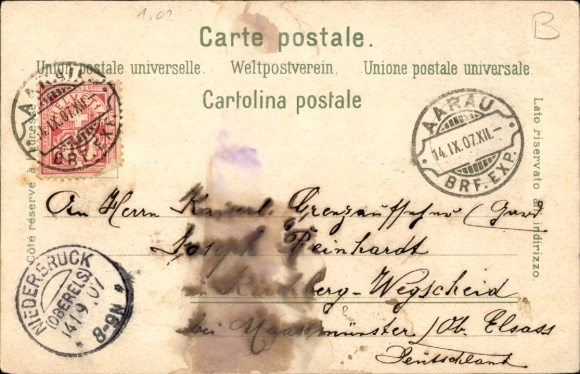 1.02
B
Carte postale.
Union postale universelle. Weltpostverein. Unione postale universale.
Cartolina postale
Côté réservé à l'adresse
Lato riservato all'indirizzo.
AARAU
14.IX.07.XII.—
BRF. EXP.
AARAU
14.IX.07.XII.—
BRF. EXP.
An Herrn Kaiserl. Grenzaufseher
Joseph Reinhardt
Kirchberg-Wegscheid
bei Masmünster / Ob. Elsass
Deutschland
NIEDERBRUCK
(OBERELS)
14.9.07
8-9N